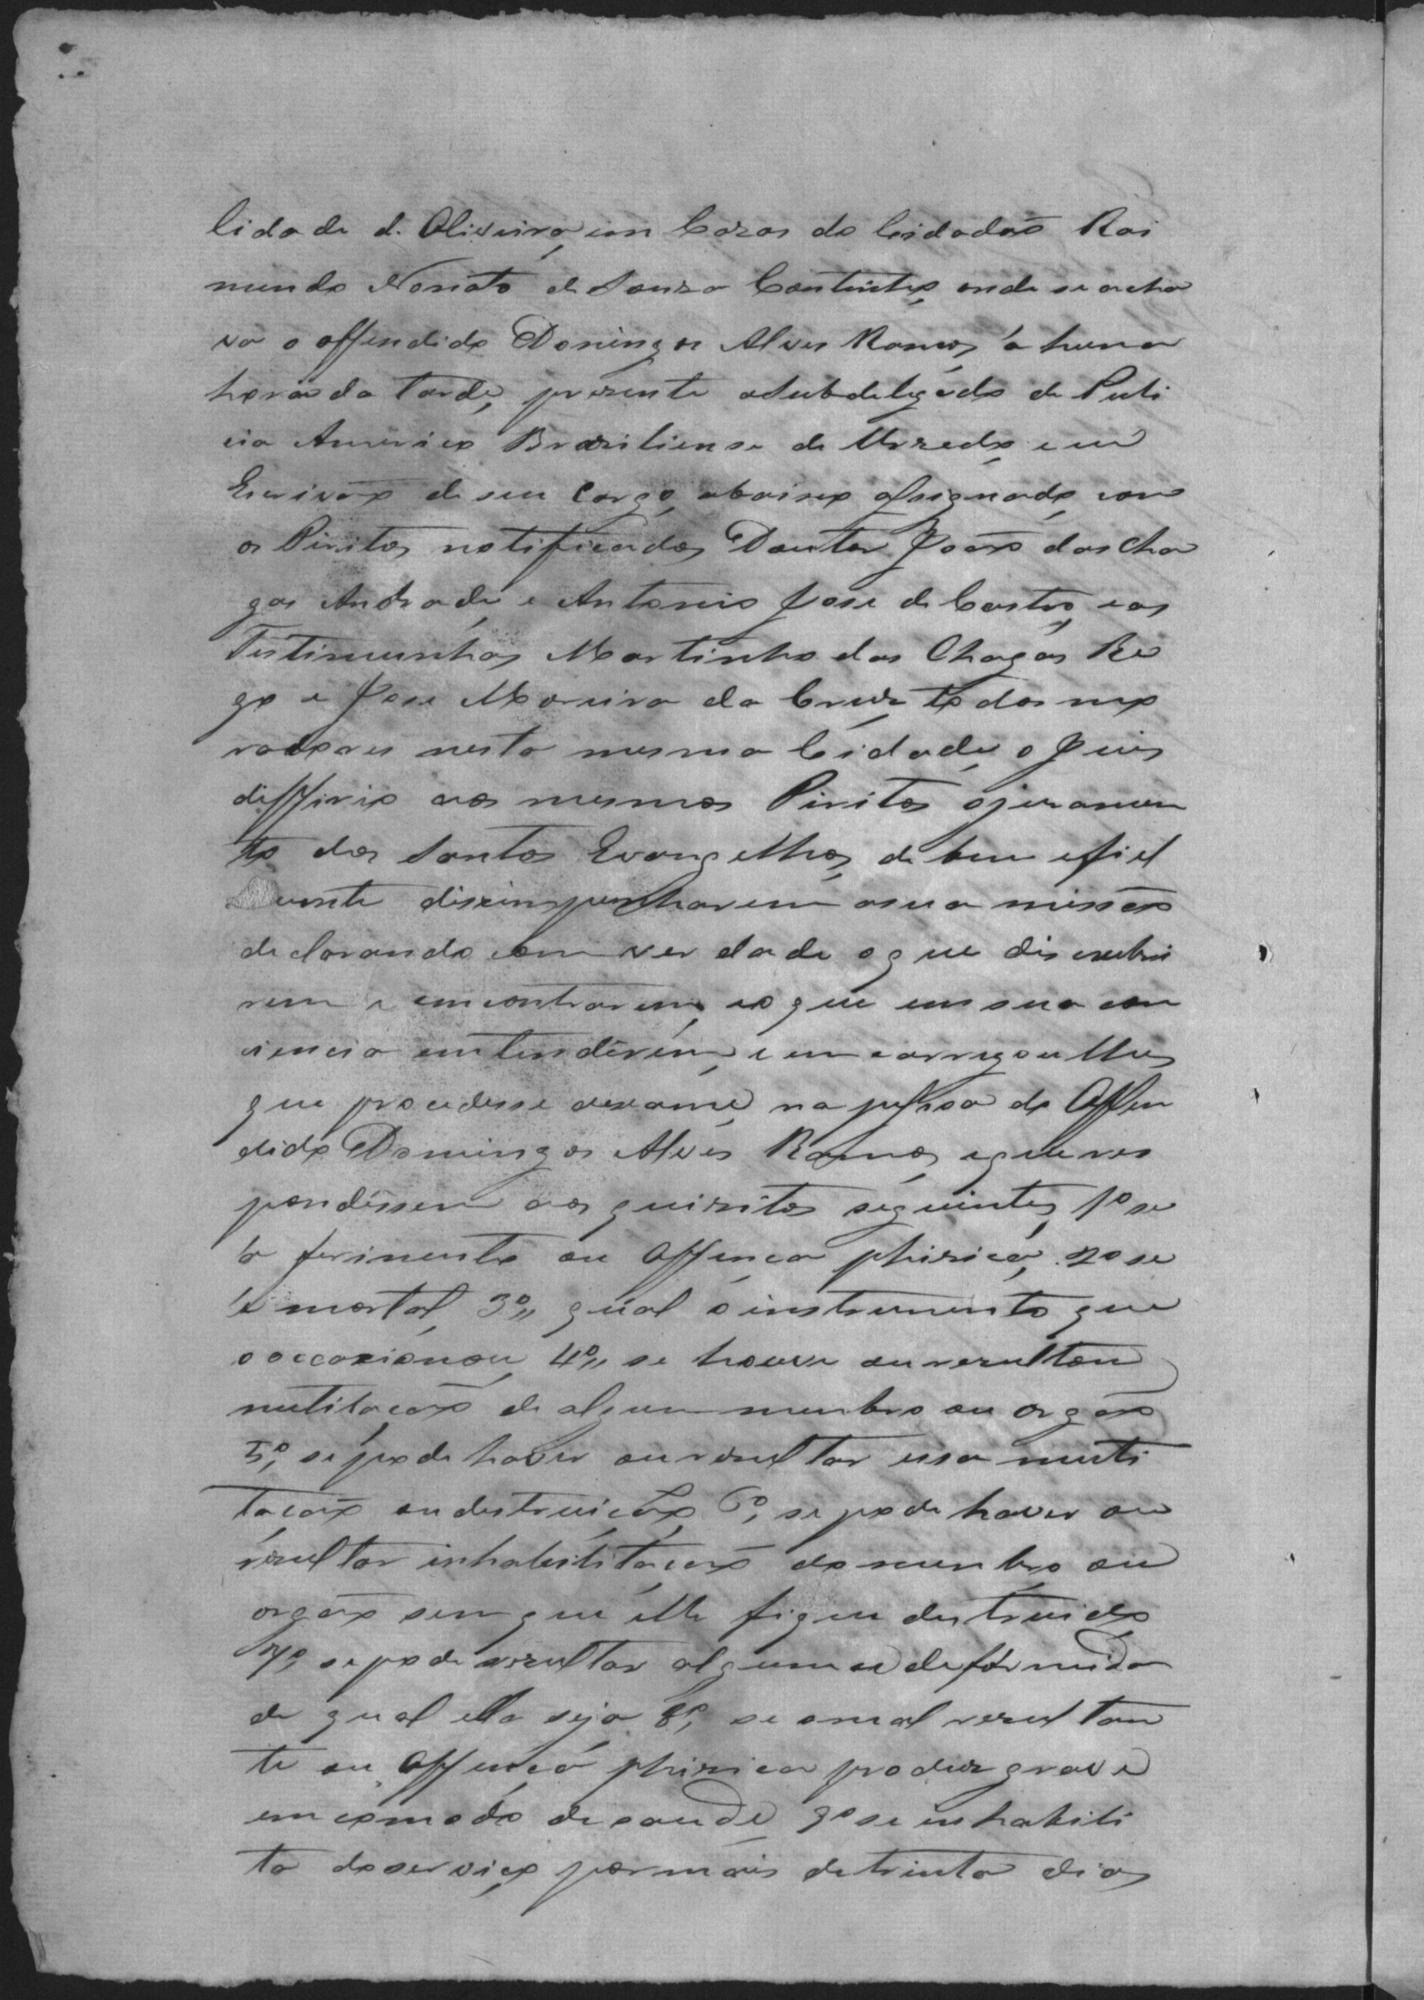 Cidade de Oliveira, em Cazas do Cidadão Rai
mundo Nonato de Souza Coutinho, onde se acha
va o offendido Domingos Alves Ramos, á huma
hora da tarde, prezente o Subdelegado de Puli
cia Americo Braziliense de Azeredo e eu
Escrivão de seu Cargo, abaixo assignado, com
os Piritos notificados, Doutor João das Cha
gas Andrade e Antonio Jose de Castro, e as
Testimunhas Martinho das Chagas Re
go e Jose Moreira da Cruz todos mo
radores nesta mesma Cidade, o Juis
differio aos mesmos Piritos o juramen
to dos Santos Evangelhos, de bem e fiel
mente dizimpenharem a sua missão
declarando com verdade o que discubri
rem e emcontrarem, e o que em sua con
ciencia emtenderem, e emcarregou lhes
que procedesse a exame na pessoa do Offen
dido Domingos Alves Ramos, e que res
pondessem aos quizitos seguintes, 1º se
há ferimento ou Offença phizica, 2º se
é mortal, 3º, qual o instrumento que
o occazionou, 4º, se houve ou rezultou
mutilação de algum membro ou orgão
5º, se pode haver ou rezultar essa muti
lação ou destruição, 6º, se pode haver ou
rezultar inhabilitação do membro ou
orgão sem que elle fique destruido
7º, se pode rezultar alguma deformida
de qual ella seja, 8º, se o mal rezultan
te ou Offença phizica produz grave
emcomodo de saude, 9º se inhabili
ta do serviço por mais de trinta dias,